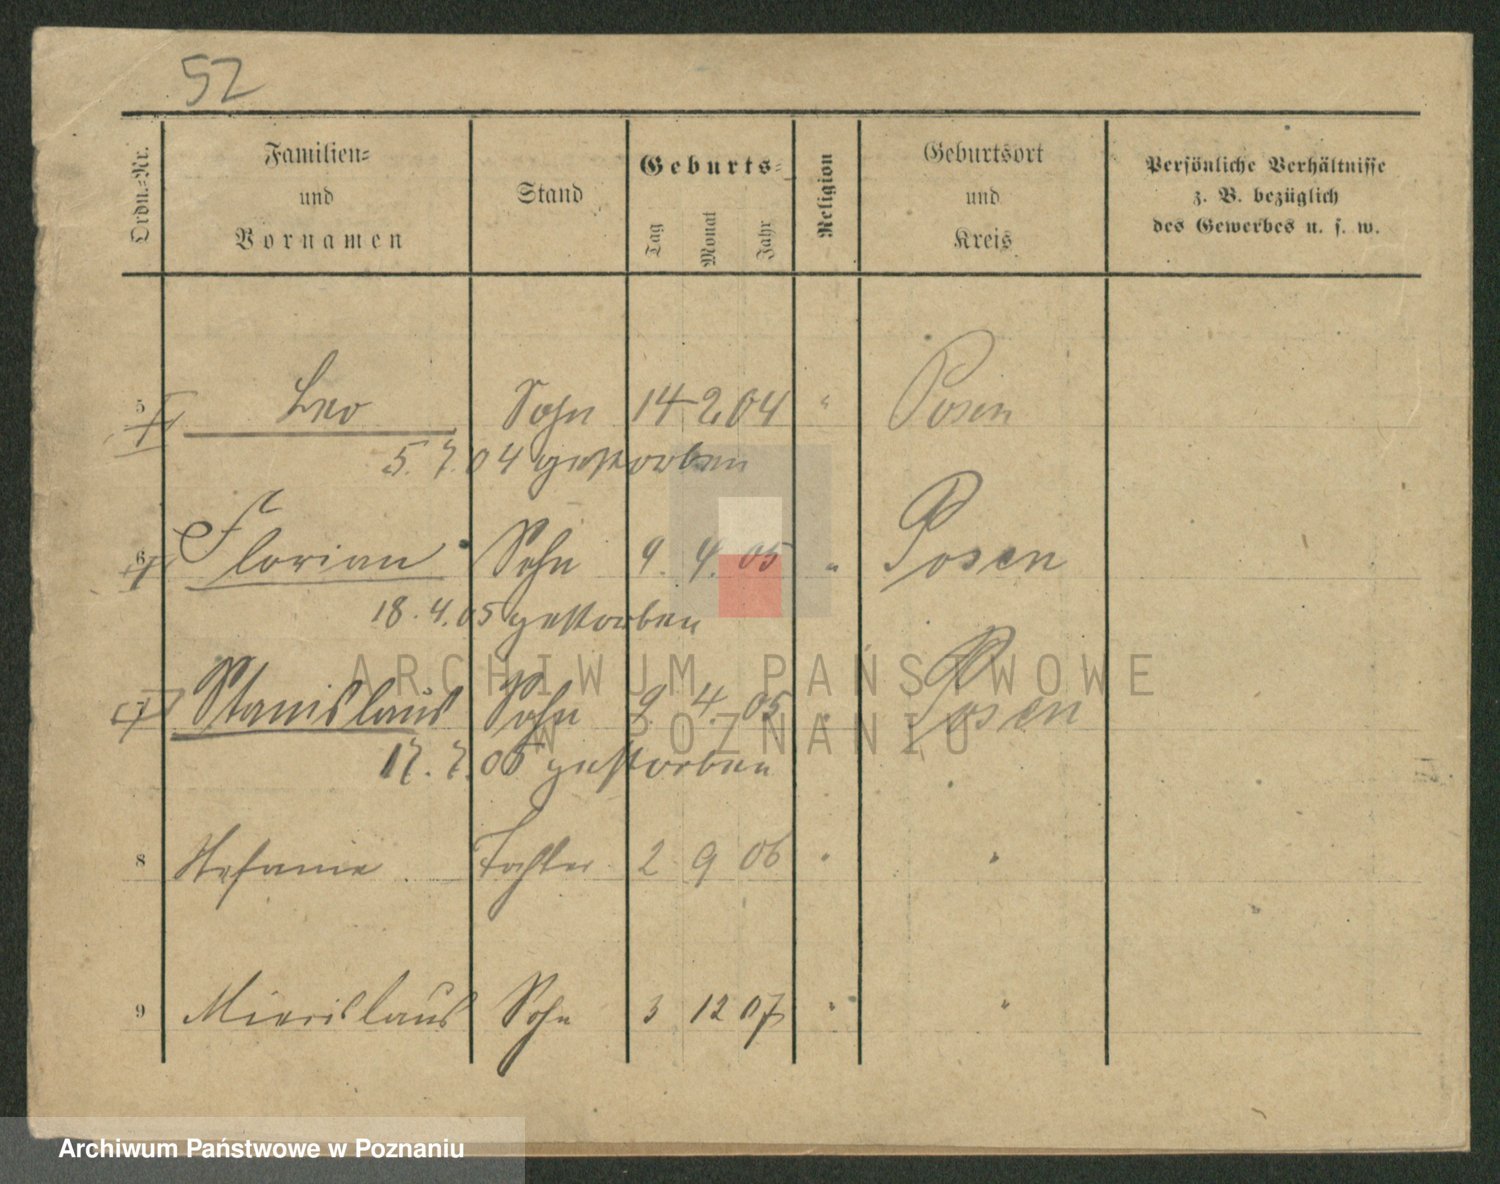 52
Ordn.-Nr. Familien- und Vornamen Stand Geburts- Tag Monat Jahr Religion Geburtsort und Kreis Persönliche Verhältnisse z. B. bezüglich des Gewerbes u. s. w.
5 Leo Sohn 14 2 04 " Posen
5. 7. 04 gestorben
6 Florian Sohn 9. 4. 05 " Posen
18. 4. 05 gestorben
7 Stanislaus Sohn 9. 4. 05 " Posen
17. 7. 05 gestorben
ARCHIWUM PAŃSTWOWE
W POZNANIU
8 Stefanie Tochter 2 9 06 " "
9 Miecislaus Sohn 3 12 07 " "
Archiwum Państwowe w Poznaniu